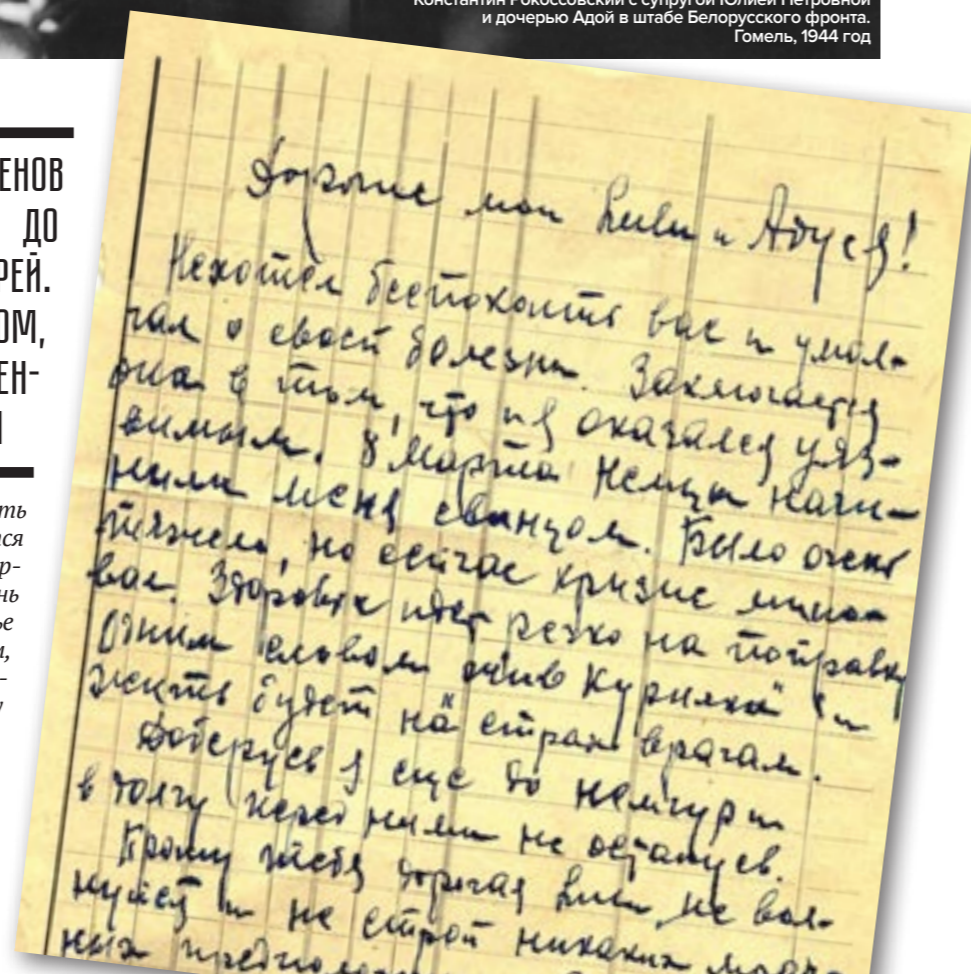 Константин Рокоссовский с супругой Юлией Петровной
и дочерью Адой в штабе Белорусского фронта.
Гомель, 1944 год
ЕНОВ
ДО
РЕЙ.
ОМ,
ЕН-
ть
тся
ер-
нь
ье
и,
Дорогие мои Люлю и Адуся!
Нехотел беспокоить вас и умол-
чал о своей болезни. Заключается
она в том, что и я оказался уяз-
вимым. 8 Марта немцы начи-
нили меня свинцом. Было очень
тяжело, но сейчас кризис мино-
вал. Здоровье идет резко на поправку
Одним словом жив курилка" и
жить будет на страх врагам.
Доберусь я еще до немчуры и
в долгу перед ними не останусь.
Прошу тебя дорогая Люлю не вол-
нуйся и не строй никаких